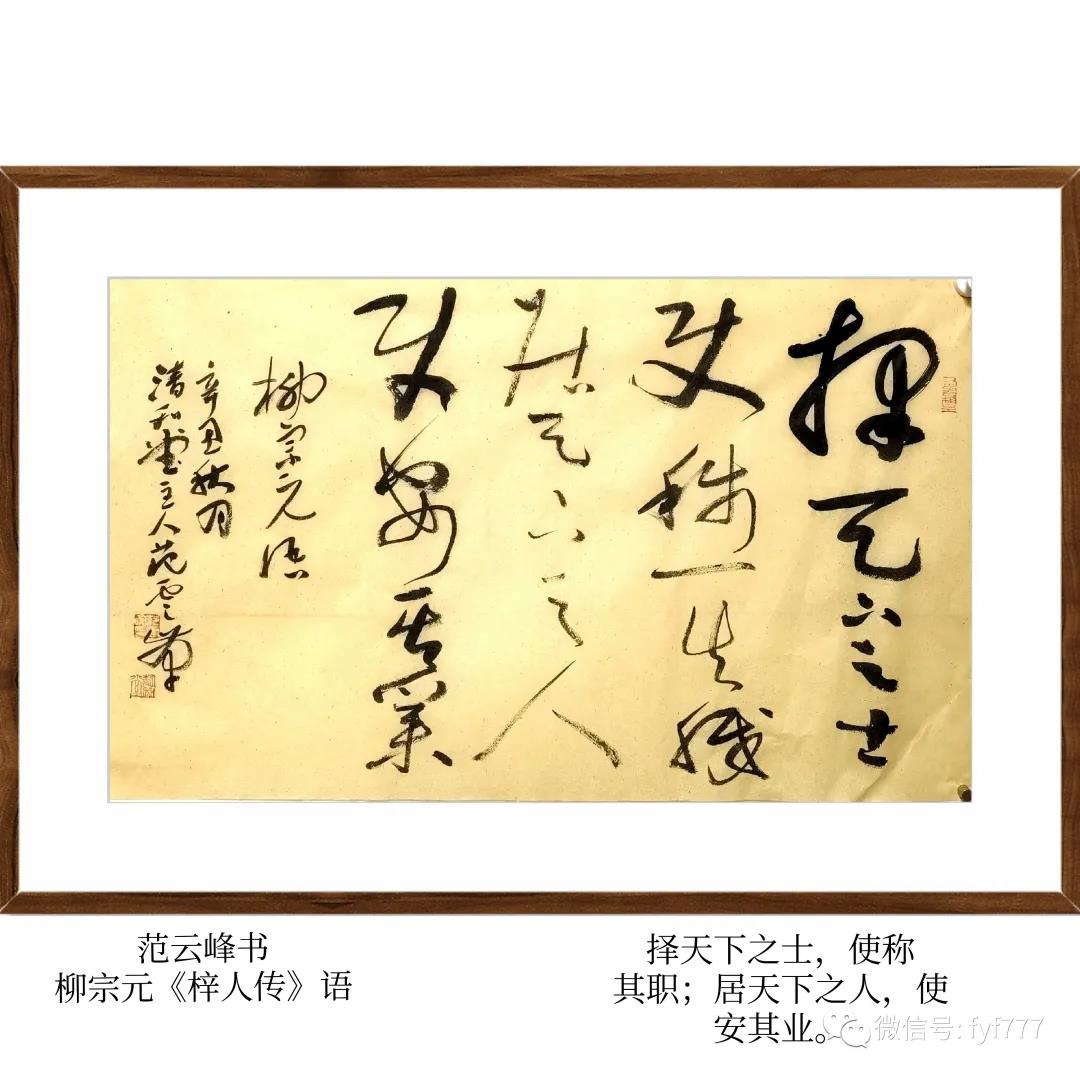 择天下之士
使称其职
居天下之人
使安其业
柳宗元语
辛丑秋月
清和堂主人范云峰
范云峰书
柳宗元《梓人传》语
择天下之士，使称
其职；居天下之人，使
安其业。
微信号: fyf777